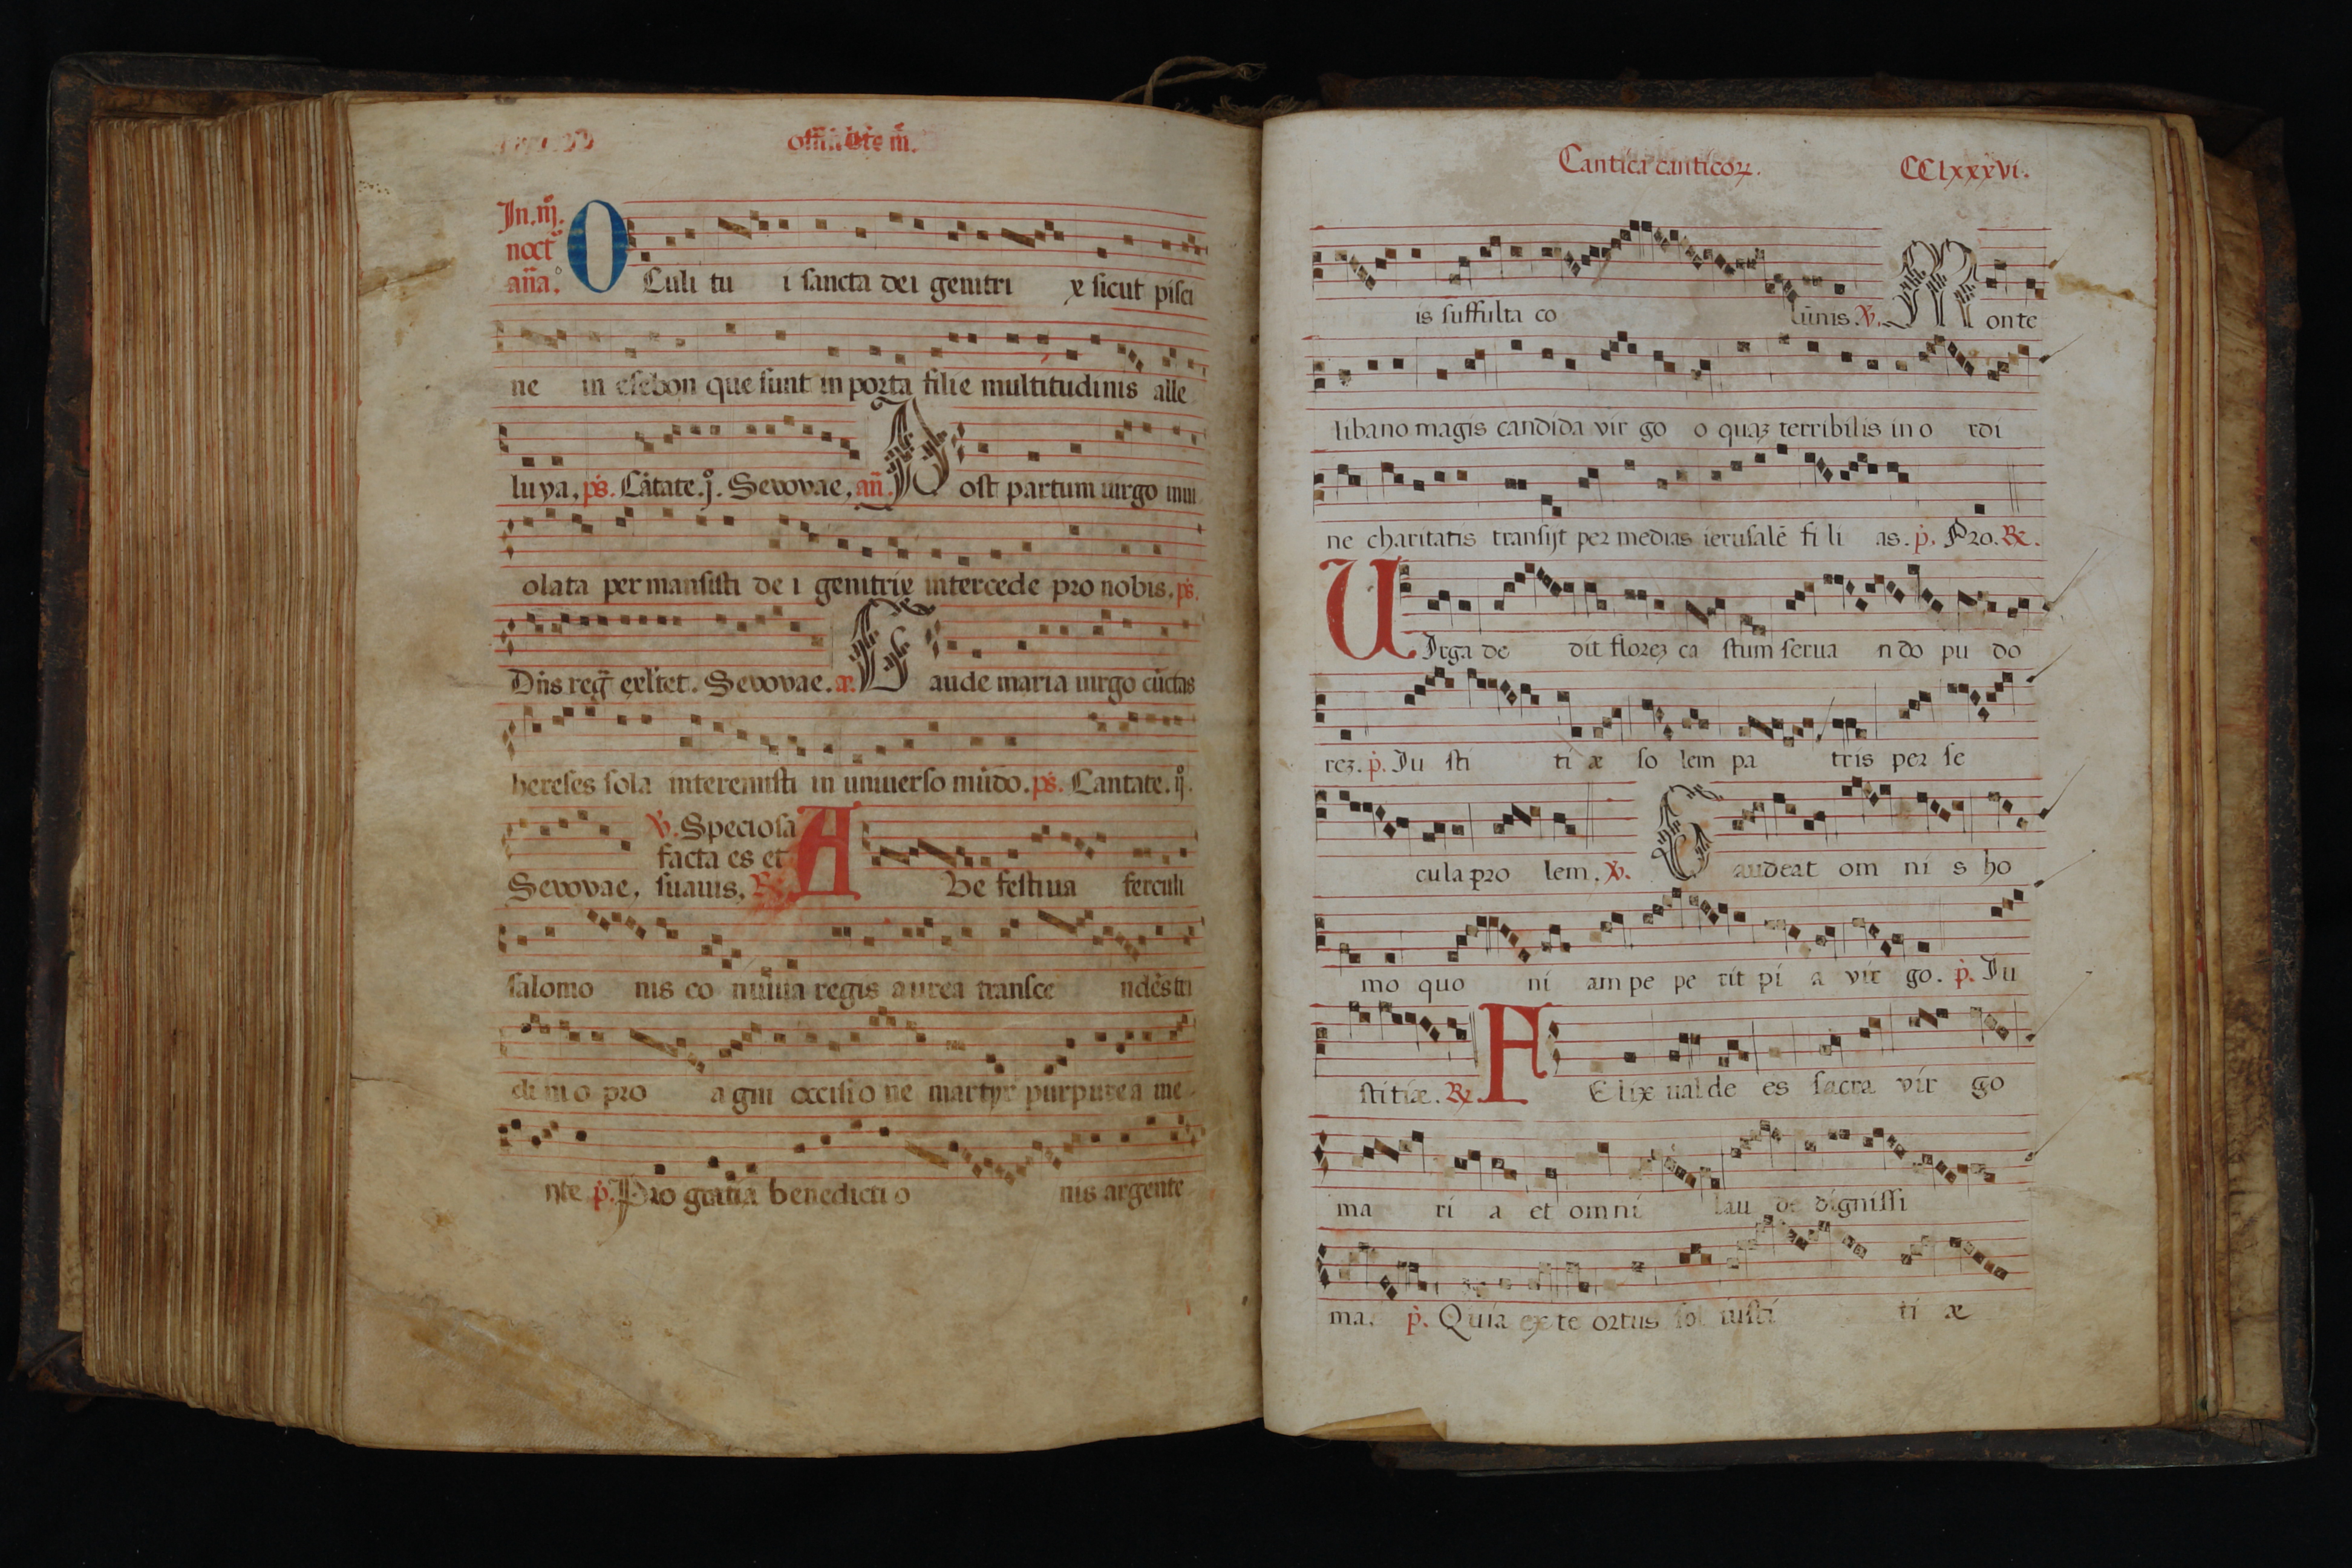 In. iij.
noct.
aña.
OCuli tu i sancta dei genitri x sicut pisci
ne in esebon que sunt in porta filie multitudinis alle
luya. ps. Cãtate. j. Sevovae. añ. Post partum uirgo inui
olata permansisti de i genitrix intercede pro nobis. ps.
Dñs reg̃ exl̃tet. Sevovae. a. Gaude maria uirgo cũctas
hereses sola interemisti in uniuerso mũdo. ps. Cantate. ij.
℣. Speciosa
facta es et
Sevovae. suauis. ℟. AVe festiua ferculi
salomo nis co nuiuia regis aurea transce ndẽsti
di ni o pro a gni occisi o ne martyr purpurea me
nte p̃. Pro gratia benedicti o nis argente
Cantica canticoꝝ. CClxxxvi.
is suffulta co lũnis. ℣. Monte
libano magis candida vir go o quaȝ terribilis in o rdi
ne charitatis transijt per medias ierusalẽ fi li as. p̃. Pro. ℟.
UIrga de dit floreȝ ca stum serua n do pu do
reȝ. p̃. Iu sti ti æ so lem pa tris per se
cula pro lem. ℣. Gaudeat om ni s ho
mo quo ni am pe pe rit pi a vir go. p̃. Iu
stitiæ. ℟. FElix ualde es sacra vir go
ma ri a et omni lau de dignissi
ma. p̃. Quia ex te ortus sol iusti ti æ